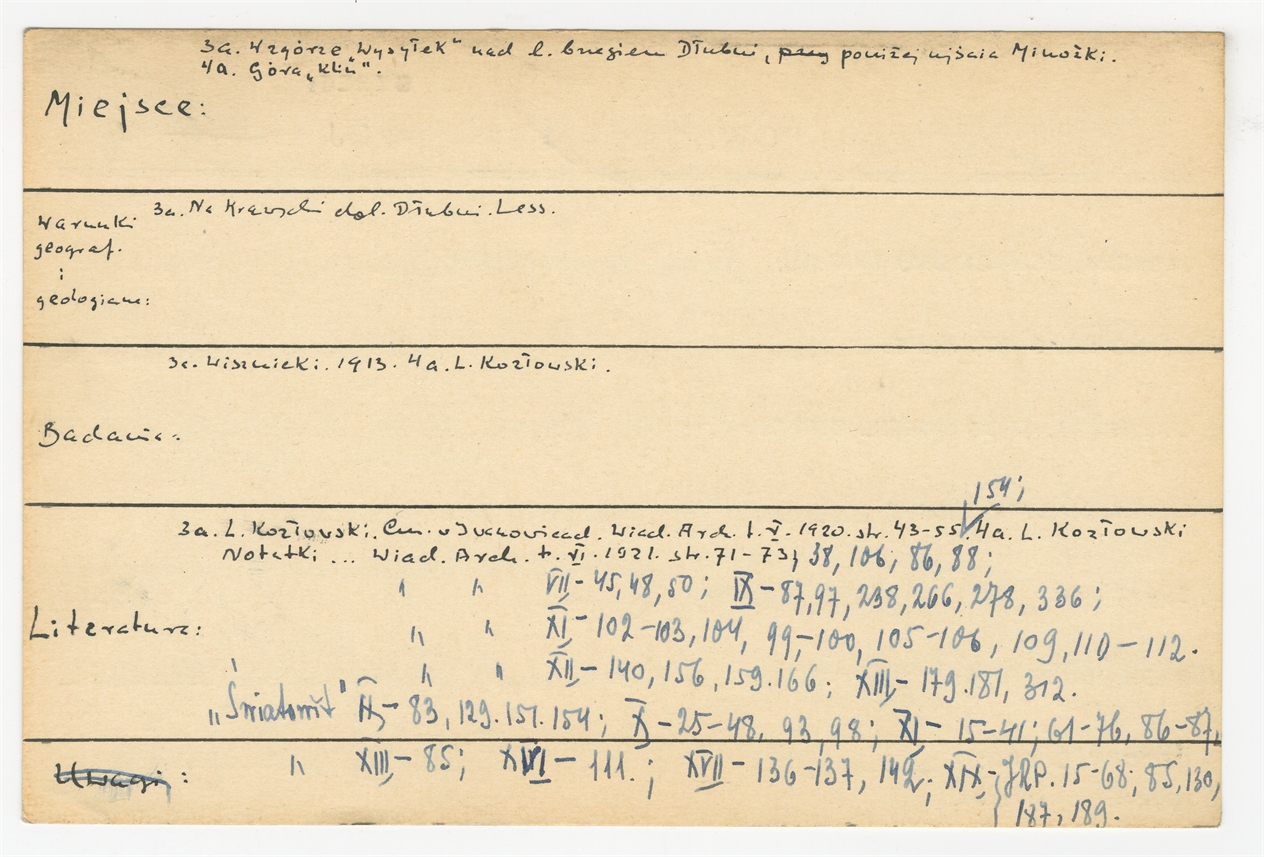 3a. Wzgórze „Wysyłek" nad l. brzegiem Dłubni, poniżej ujścia Minożki.
4a. Góra „Klin".
Miejsce:
3a. Na Krawędzi dol. Dłubni. Less.
Warunki
geograf.
i
geologiczne:
3a. Wiśnicki. 1913. 4a. L. Kozłowski.
Badania:
154;
3a. L. Kozłowski. Cm. w Iwanowicach. Wiad. Arch. t. V. 1920. str. 43-55. 4a. L. Kozłowski
Notatki ... Wiad. Arch. t. VI. 1921. str. 71-73; 38, 106; 86, 88;
" " VII - 45, 48, 50; IX - 87, 97, 238, 266, 278, 336;
Literatura:
" " XI - 102-103, 104, 99-100, 105-106, 109, 110-112.
" " XII - 140, 156, 159. 166; XIII - 179. 181, 312.
„Światowit" - 83, 129. 151. 154; X - 25-48, 93, 98; XI - 15-41; 61-76, 86-87,
Uwagi:
" XIII - 85; XVI - 111.; XVII - 136-137, 142; XIX - JRP. 15-68; 85, 130,
187, 189.